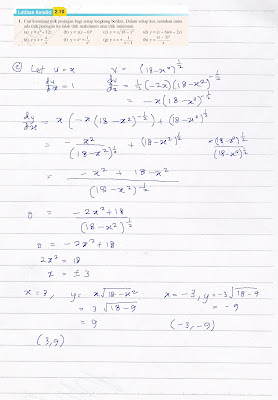 Latihan Kendiri 2.10
1. Cari koordinat titik pusingan bagi setiap lengkung berikut. Dalam setiap kes, tentukan sama
ada titik pusingan itu ialah titik maksimum atau titik minimum.
(a) y = x³ – 12x (b) y = x(x – 6)² (c) y = x√18 – x² (d) y = (x – 6)(4 – 2x)
(e) y = x + 4/x (f) y = x² + 1/x² (g) y = x + 1/(x – 1)
(c) Let u = x v = (18-x²)^½
du/dx = 1 dv/dx = ½(-2x)(18-x²)^-½
= -x(18-x²)^-½
dy/dx = x(-x(18-x²)^-½) + (18-x²)^½
= - x²/(18-x²)^½ + (18-x²)^½ × (18-x²)^½/(18-x²)^½
= - x² + 18 - x²/(18-x²)^½
0 = - 2x² + 18/(18-x²)^½
0 = - 2x² + 18
2x² = 18
x = ± 3
x = 3, y = x√18-x² x = -3, y = -3√18-9
= 3√18-9 = -9
= 9 (-3, -9)
(3, 9)